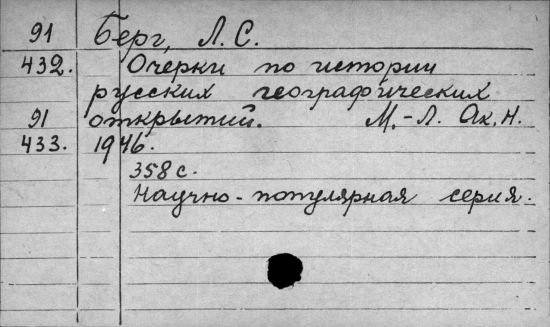 91 Берг, Л. С.
432. Очерки по истории
русских географических
91 открытий. М.-Л. Ак. Н.
433. 1946.
358 с.
Научно-популярная серия.